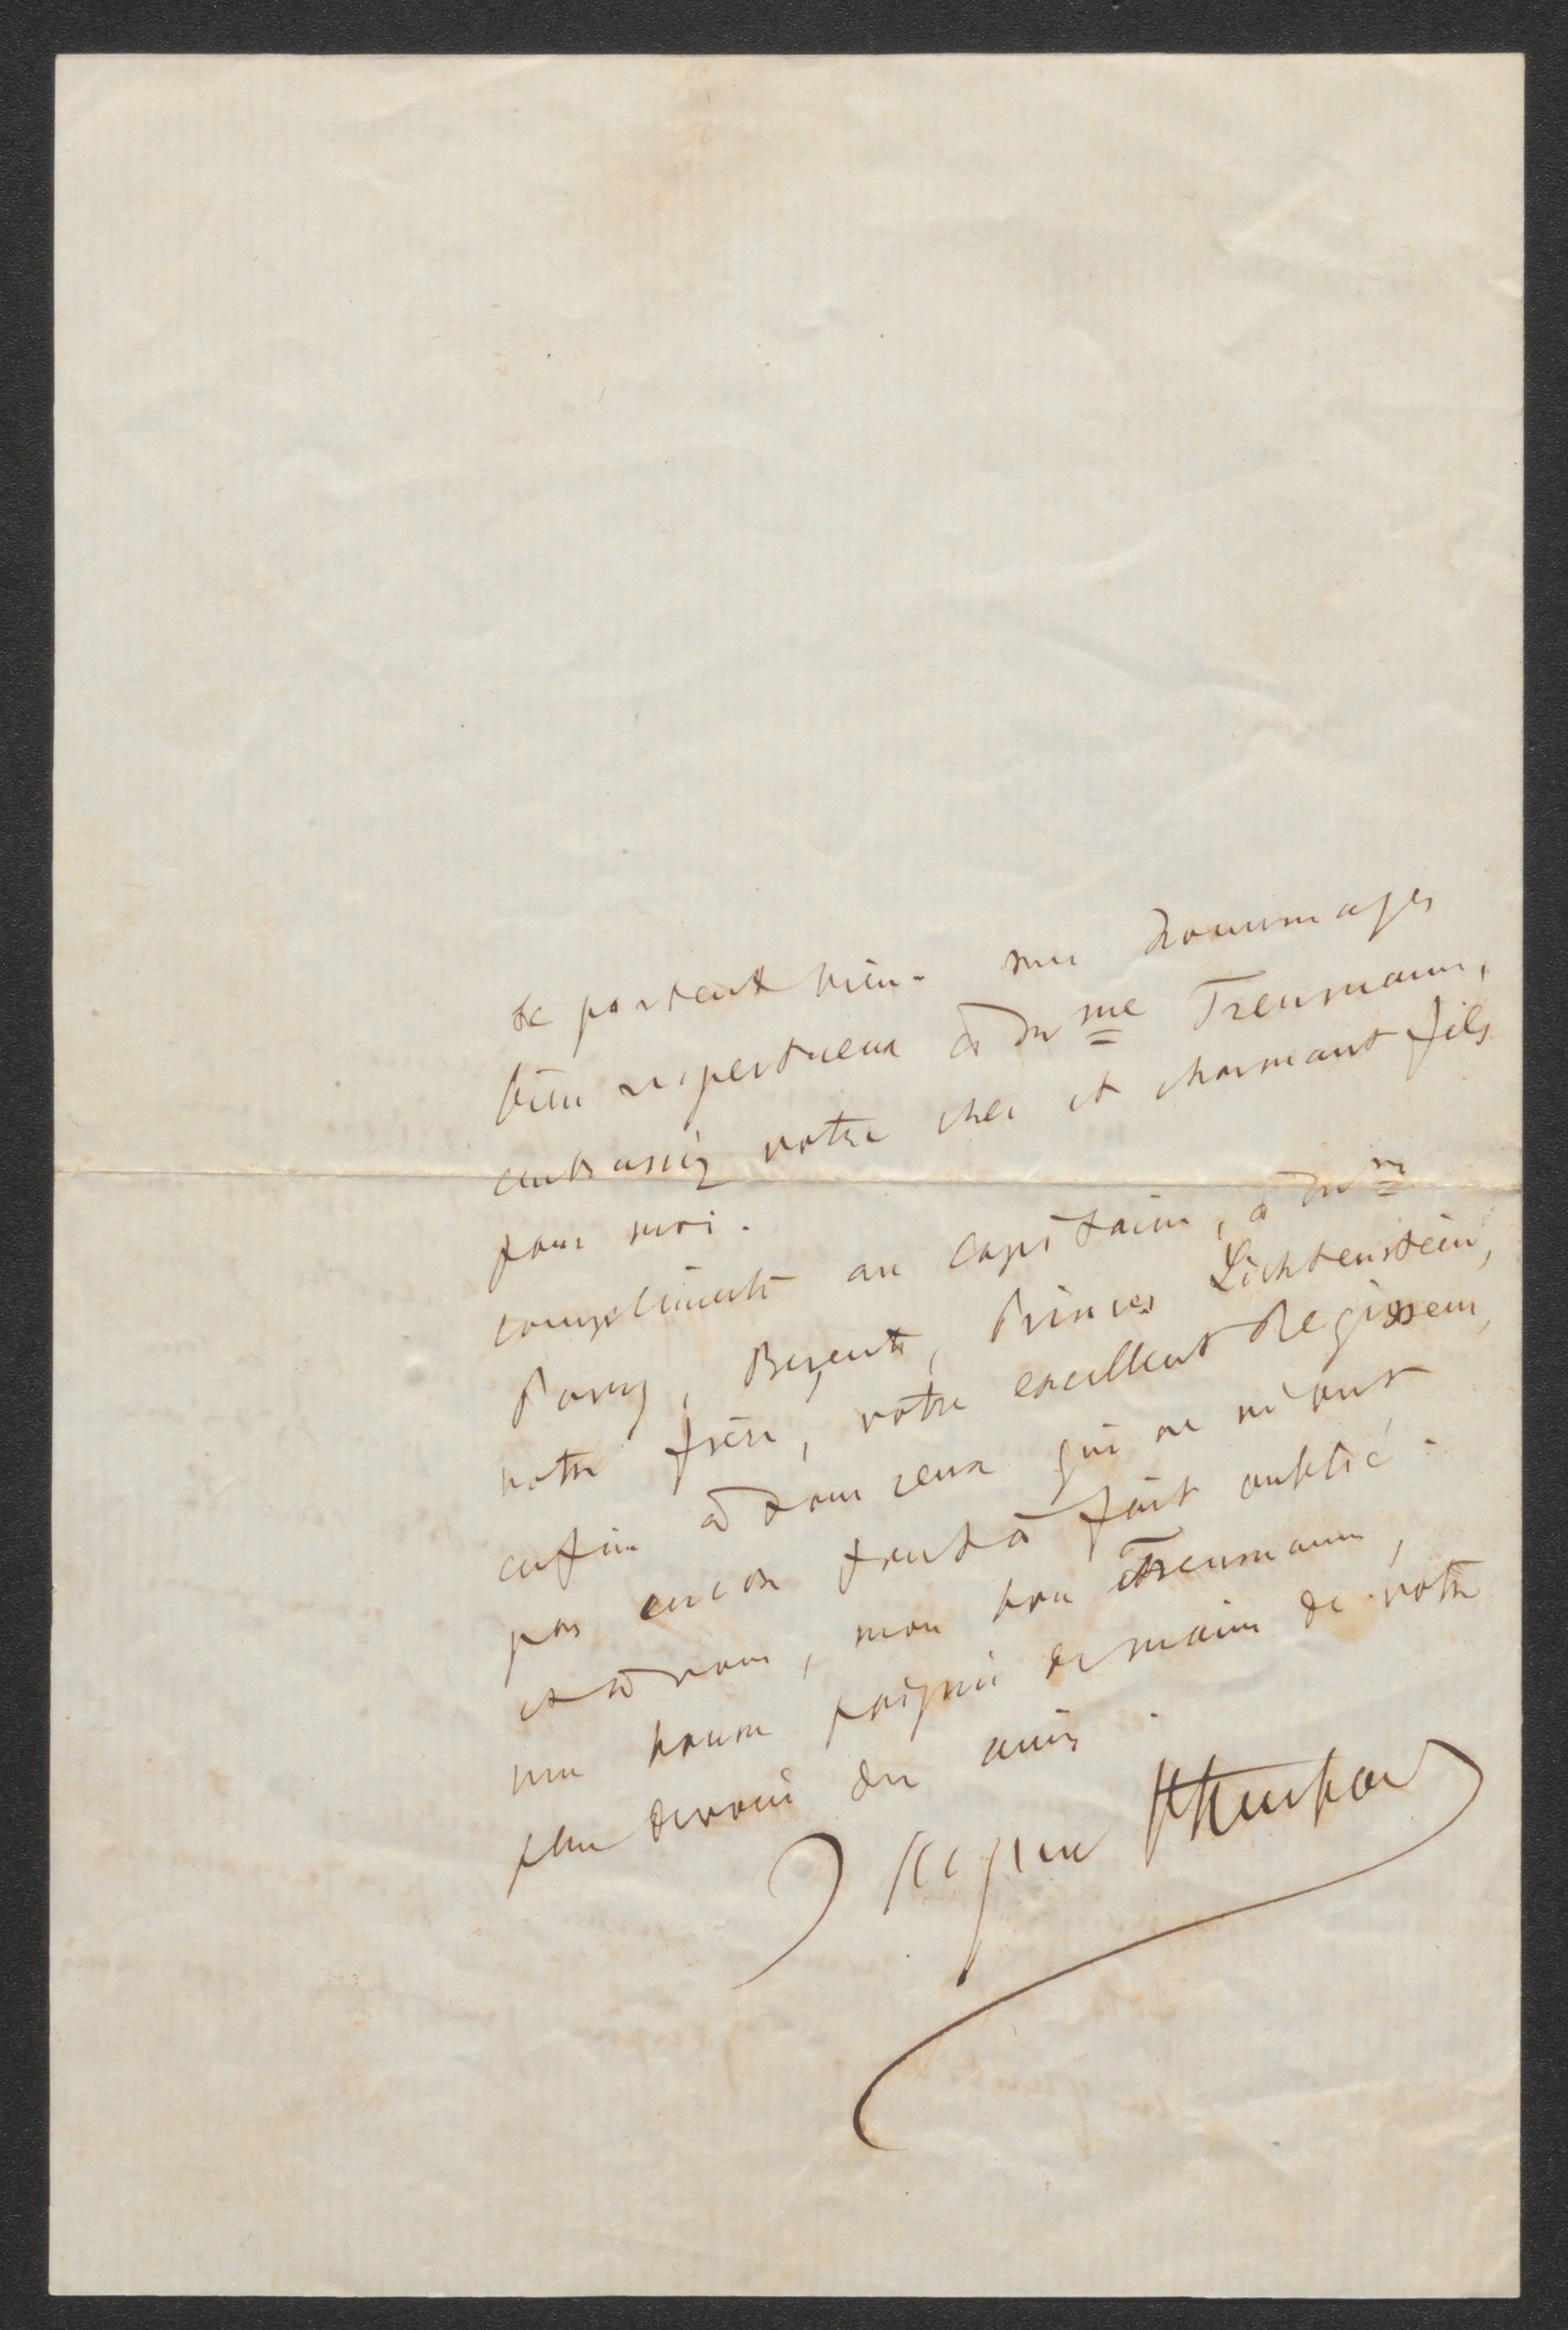 se portent bien. mes hommages
bien respectueux à Mme Treumann,
embrassez votre cher et charmant fils
pour moi.
compliments au Capitaine, à Mr
Princes Lichtenstein,
votre frère, votre excellent Regisseur,
enfin à tous ceux qui ne m'ont
pas encore tout à fait oublié.
et à vous, mon bon Treumann,
une bonne poignée de main de votre
plus dévoué des amis
Jacques Offenbach